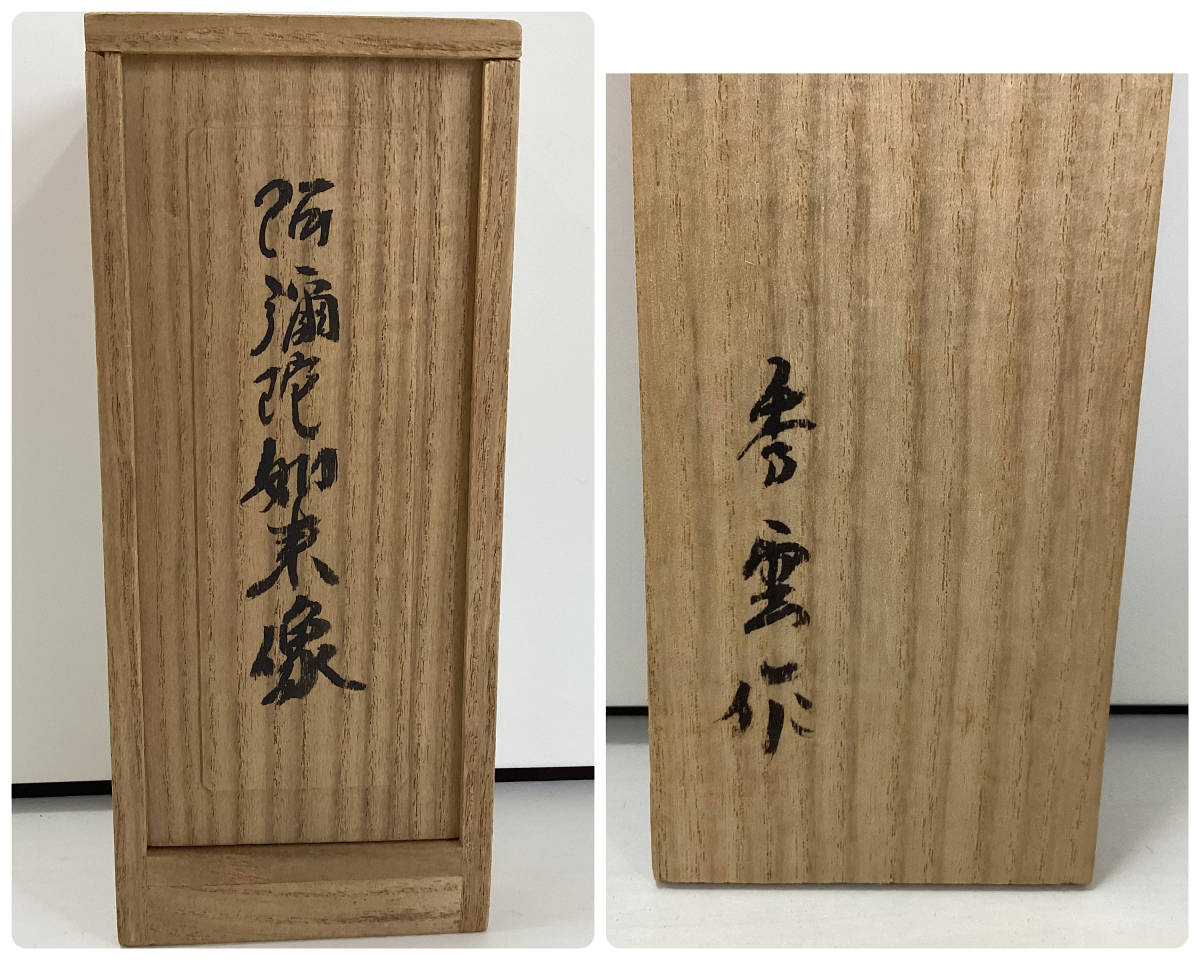 阿彌陀如来像
秀雲作